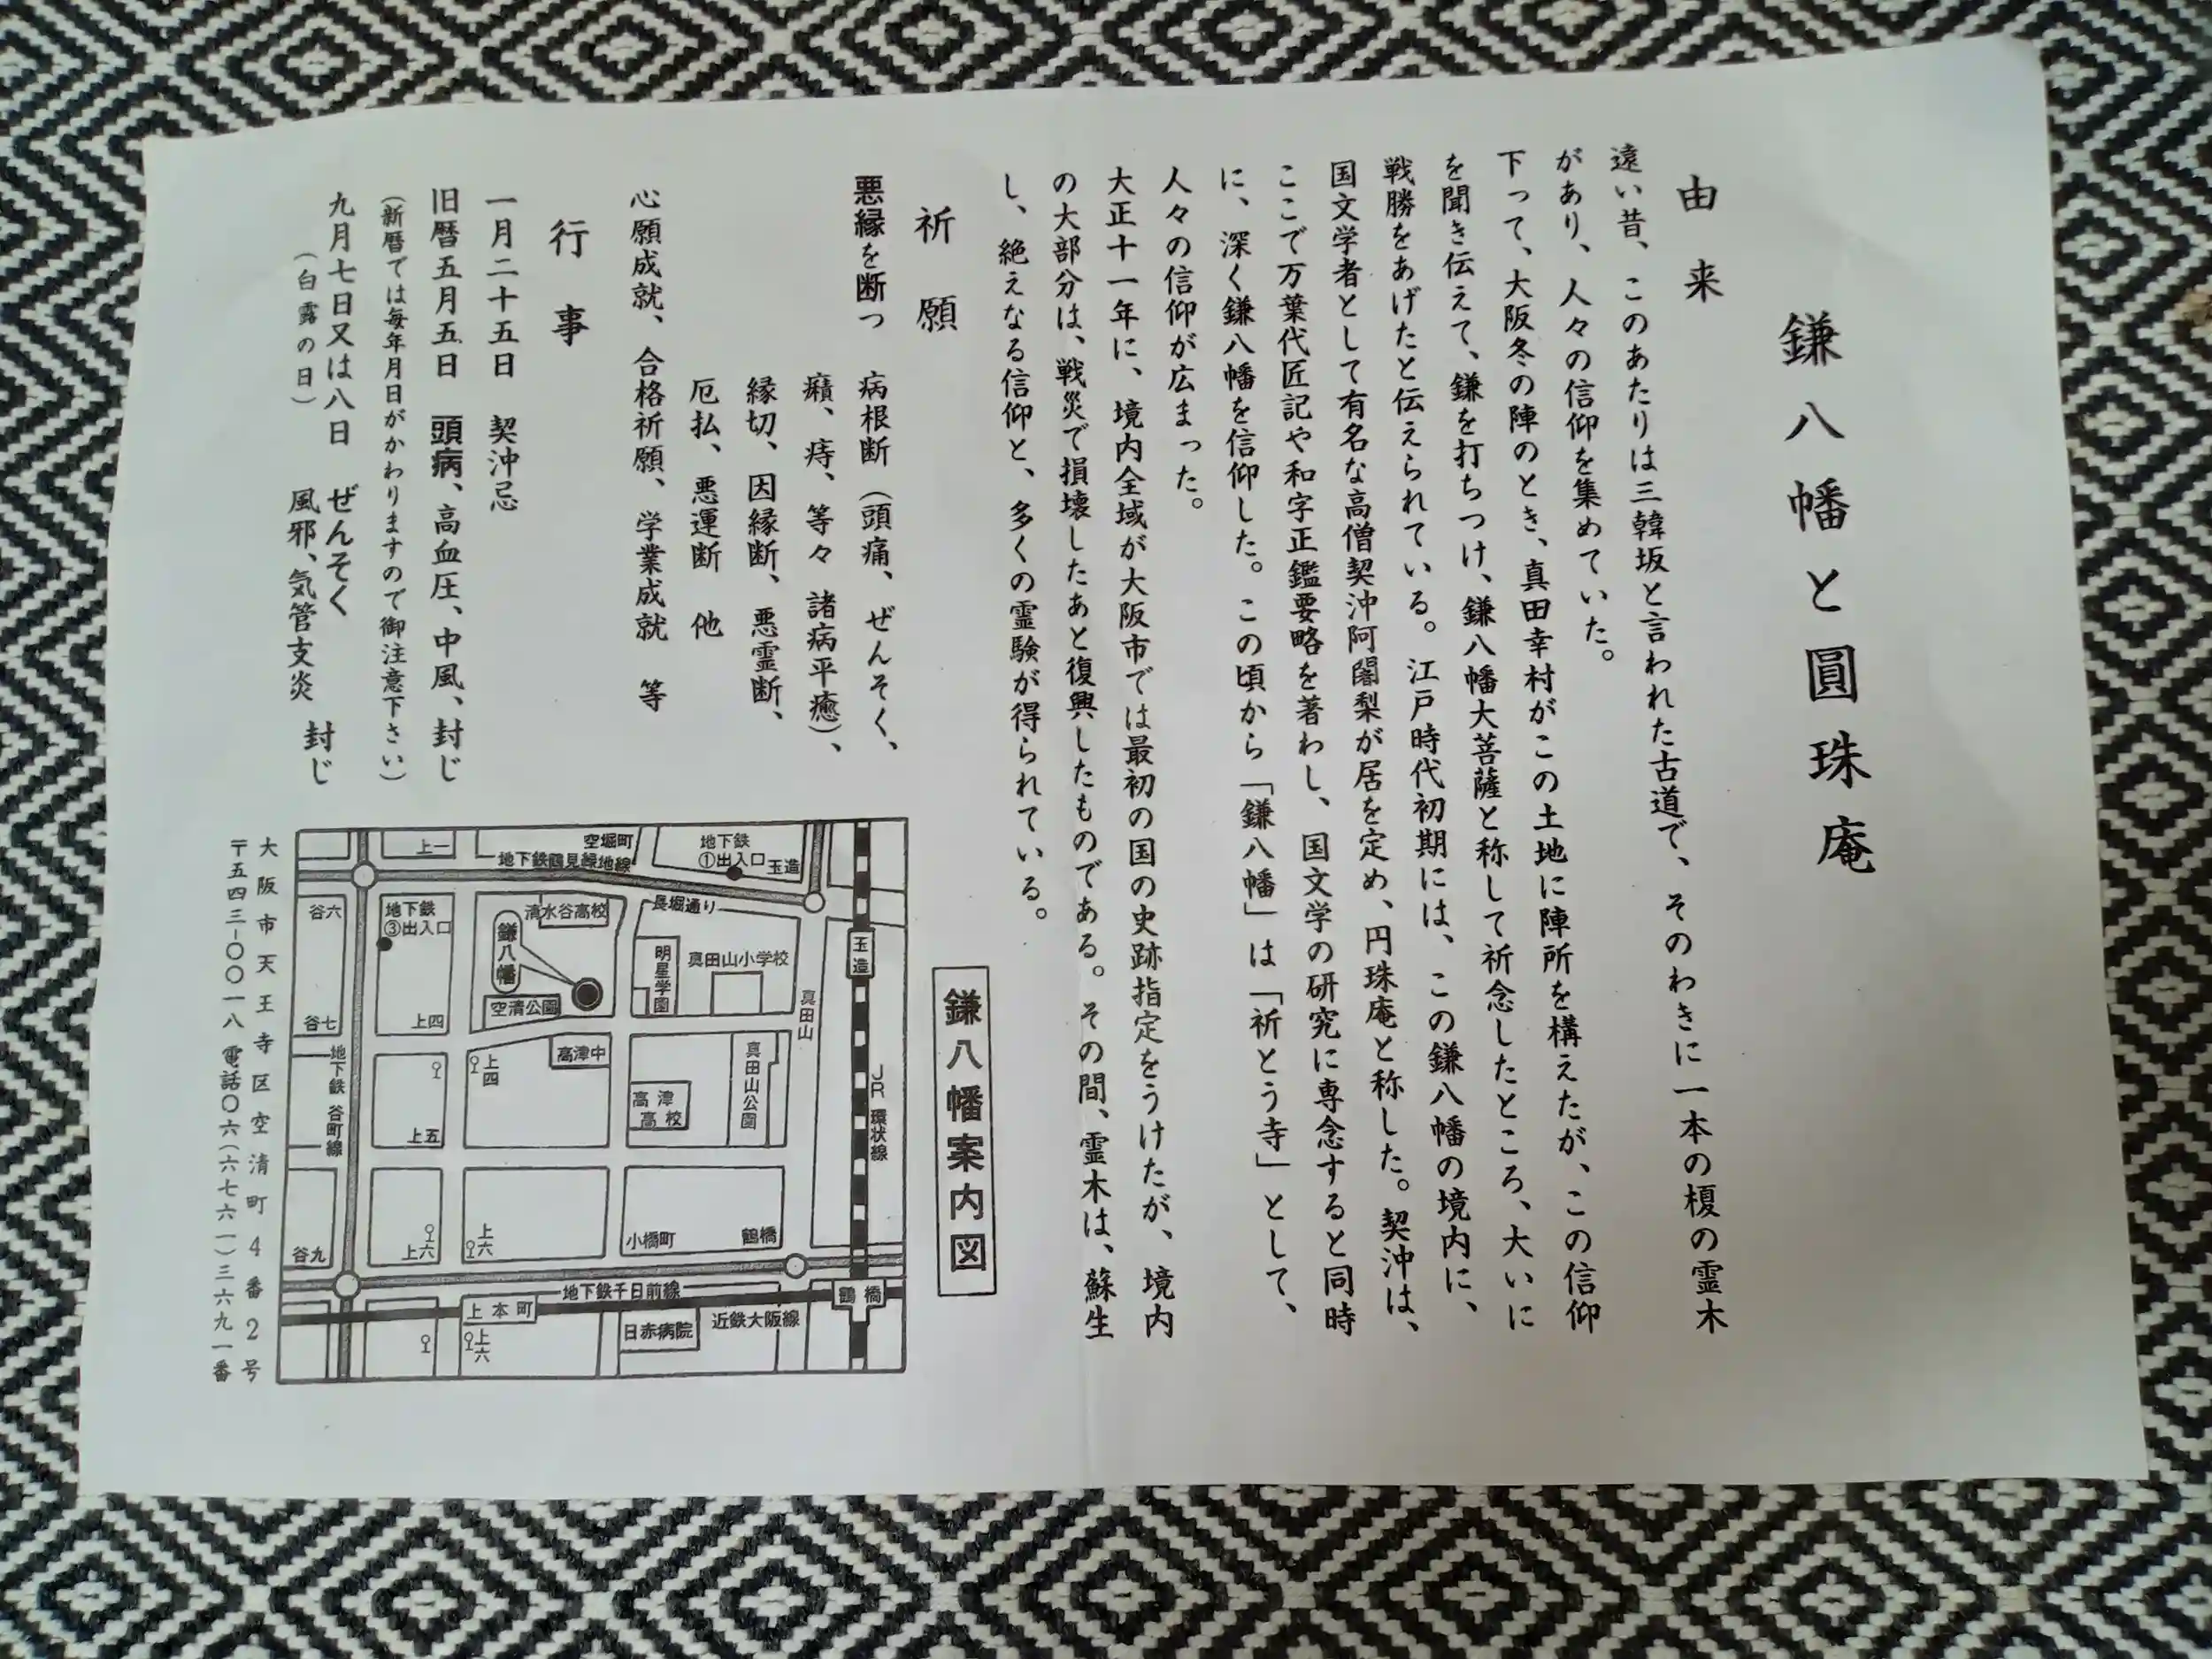 鎌八幡と圓珠庵
由来
遠い昔、このあたりは三韓坂と言われた古道で、そのわきに一本の榎の霊木
があり、人々の信仰を集めていた。
下って、大阪冬の陣のとき、真田幸村がこの土地に陣所を構えたが、この信仰
を聞き伝えて、鎌を打ちつけ、鎌八幡大菩薩と称して祈念したところ、大いに
戦勝をあげたと伝えられている。江戸時代初期には、この鎌八幡の境内に、
国文学者として有名な高僧契沖阿闍梨が居を定め、円珠庵と称した。契沖は、
ここで万葉代匠記や和字正鑑要略を著わし、国文学の研究に専念すると同時
に、深く鎌八幡を信仰した。この頃から「鎌八幡」は「祈とう寺」として、
人々の信仰が広まった。
大正十一年に、境内全域が大阪市では最初の国の史跡指定をうけたが、境内
の大部分は、戦災で損壊したあと復興したものである。その間、霊木は、蘇生
し、絶えなる信仰と、多くの霊験が得られている。
祈願
悪縁を断つ 病根断（頭痛、ぜんそく、
癪、痔、等々 諸病平癒）、
縁切、因縁断、悪霊断、
厄払、悪運断 他
心願成就、合格祈願、学業成就 等
行事
一月二十五日 契沖忌
旧暦五月五日 頭病、高血圧、中風、封じ
（新暦では毎年月日がかわりますので御注意下さい）
九月七日又は八日 ぜんそく 封じ
（白露の日） 風邪、気管支炎
鎌八幡案内図
上一
空堀町
地下鉄鶴見緑地線
地下鉄
①出入口
玉造
谷六
地下鉄
③出入口
清水谷高校
長堀通り
鎌八幡
明星学園
真田山小学校
玉造
空清公園
真田山
谷七
上四
上四
高津中
真田山公園
JR環状線
地下鉄 谷町線
高津
高校
上五
谷九
上六
上六
小橋町
鶴橋
地下鉄千日前線
上本町
鶴橋
上六
日赤病院
近鉄大阪線
大阪市天王寺区空清町4番2号
〒五四三-〇〇一八 電話〇六(六七六一)三六九一番